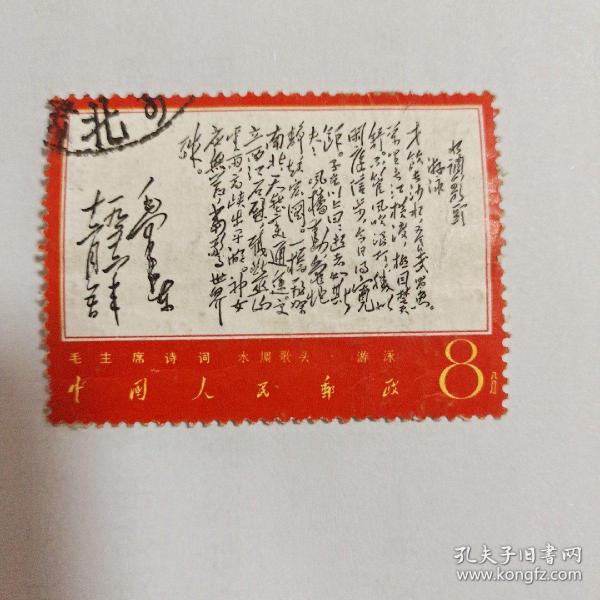 北
水调歌头
游泳
才饮长沙水，又食武昌鱼。
万里长江横渡，极目楚天
舒。不管风吹浪打，胜似
闲庭信步，今日得宽
馀。子在川上曰：逝者如斯
夫！风樯动，龟蛇
静，起宏图。一桥飞架
南北，天堑变通途。更
立西江石壁，截断巫山
云雨，高峡出平湖。神女
应无恙，当惊世界
殊。
毛泽东
一九五六年
十二月五日
毛主席诗词 水调歌头·游泳
中国人民邮政
8分
孔夫子旧书网
www.kongfz.com